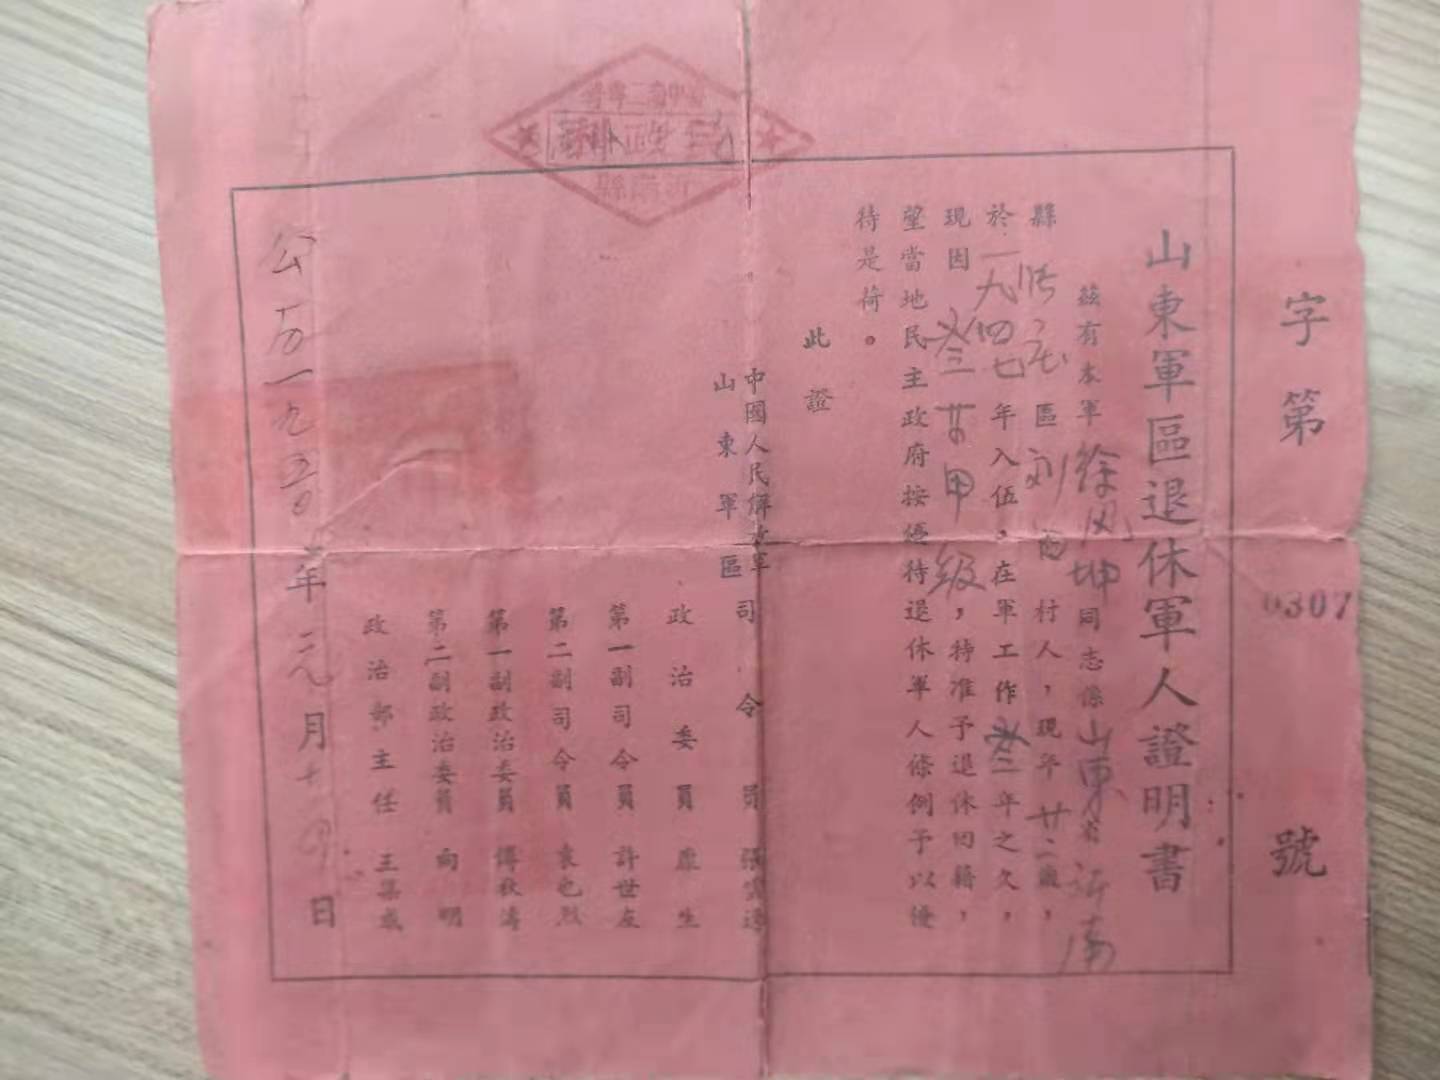 字第 0307 號
山東軍區退休軍人證明書
茲有本軍徐风坤同志係山東省沂南
縣 區刘 村人，現年廿二歲，
於一九四七年入伍。在軍工作叁年之久，
現因 叁 甲級，特准予退休回籍，
望當地民主政府按優待退休軍人條例予以優
待是荷。
此證
中國人民解放軍
山東軍區
司令員 張雲逸
政治委員 康生
第一副司令員 許世友
第二副司令員 袁也烈
第一副政治委員 傅秋濤
第二副政治委員 向明
政治部主任 王集成
公历一九五〇年元月十四日
沂南縣